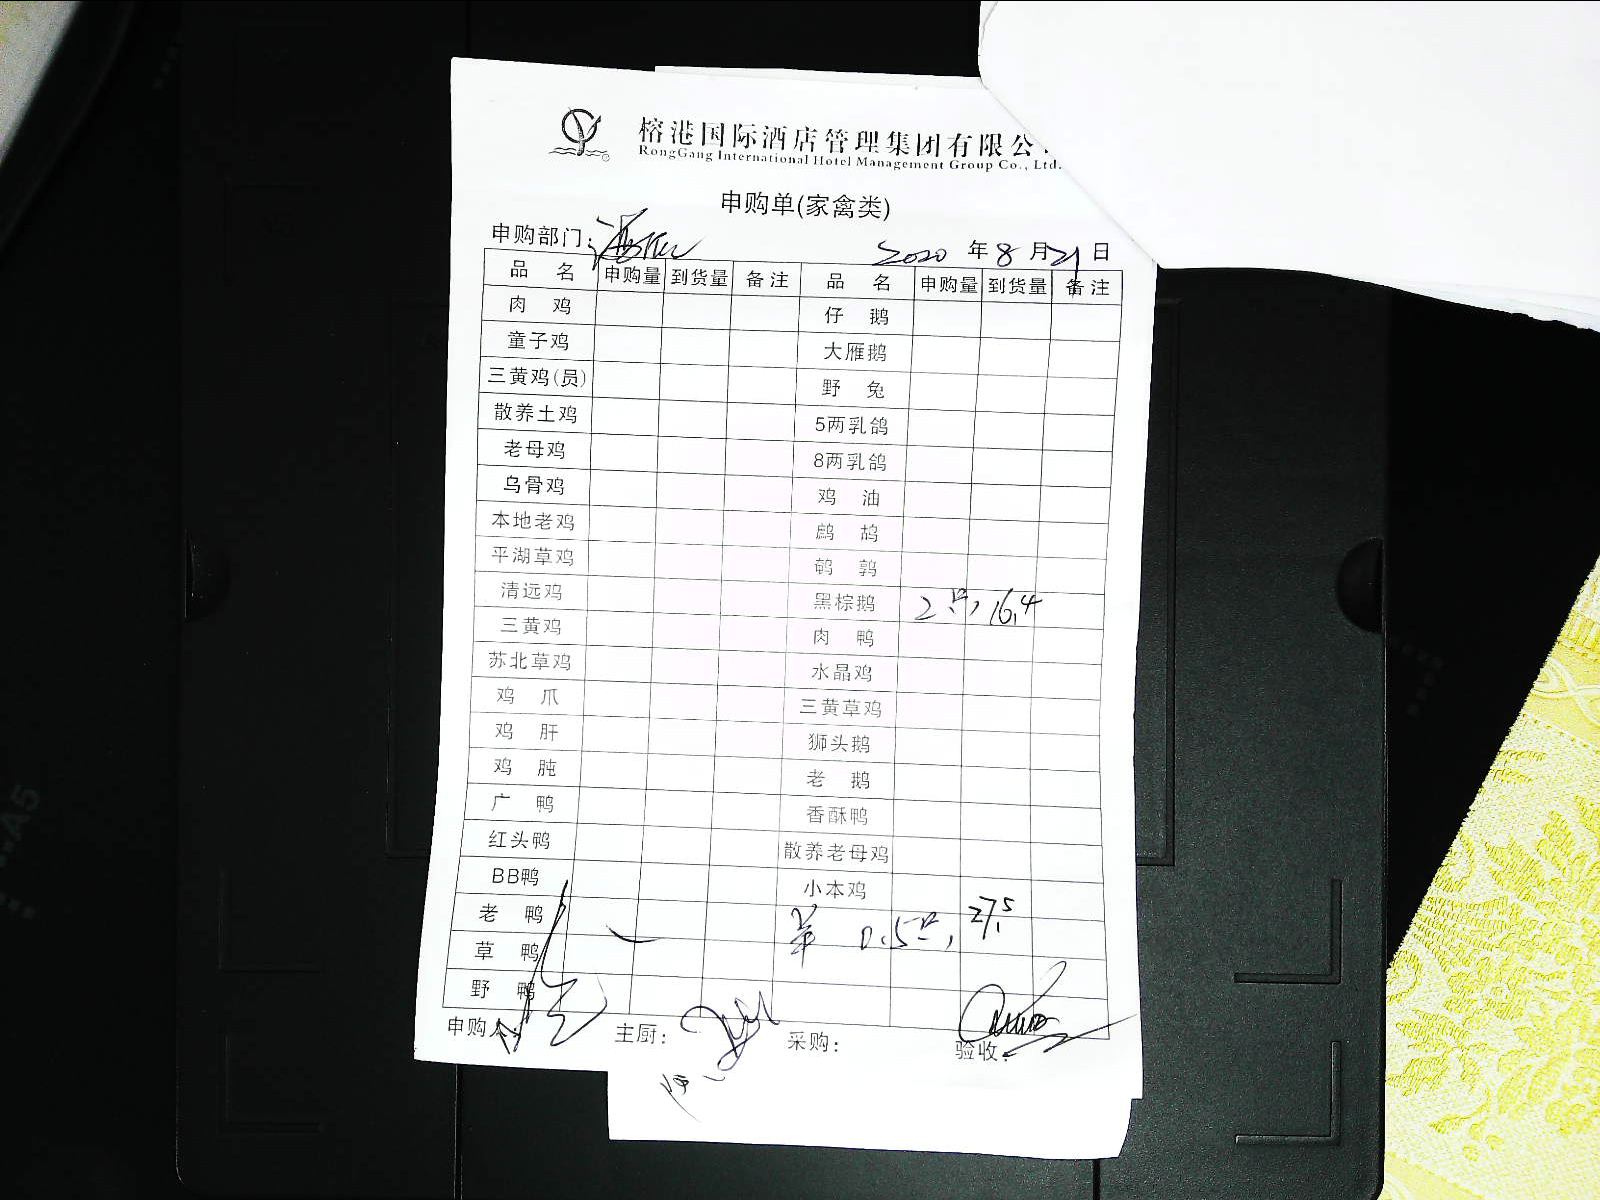 榕港国际酒店管理集团有限公
RongGang International Hotel Management Group Co., Ltd.
申购单(家禽类)
申购部门: 2020 年 8 月 21 日
品 名 申购量 到货量 备注 品 名 申购量 到货量 备注
肉 鸡 仔 鹅
童子鸡 大雁鹅
三黄鸡(员) 野 兔
散养土鸡 5两乳鸽
老母鸡 8两乳鸽
乌骨鸡 鸡 油
本地老鸡 鹧 鸪
平湖草鸡 鹌 鹑
清远鸡 黑棕鹅 2只, 16.4
三黄鸡 肉 鸭
苏北草鸡 水晶鸡
鸡 爪 三黄草鸡
鸡 肝 狮头鹅
鸡 肫 老 鹅
广 鸭 香酥鸭
红头鸭 散养老母鸡
BB鸭 小本鸡
老 鸭 羊 0.5只, 27.5
草 鸭
野 鸭
申购人: 主厨: 采购: 验收:
A5